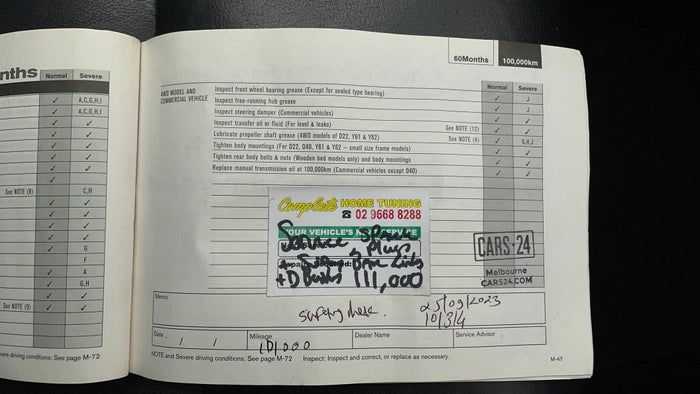 nths
Normal Severe
✓ A,C,G,H,I
✓ A,C,G,H,I
✓ ✓
✓ ✓
✓ ✓
✓
See NOTE (8) C,H
✓ ✓
✓ ✓
✓ ✓
✓ ✓
✓ G
F
✓ A
✓ G,H
✓ ✓
See NOTE (9) ✓ ✓
vere driving conditions: See page M-72
60Months 100,000km
Normal Severe
4WD MODEL AND COMMERCIAL VEHICLE
Inspect front wheel bearing grease (Except for sealed type bearing) ✓ J
Inspect free-running hub grease ✓ J
Inspect steering damper (Commercial vehicles) ✓ ✓
Inspect transfer oil or fluid (For level & leaks) See NOTE (12) ✓ ✓
Lubricate propeller shaft grease (4WD models of D22, Y61 & Y62) See NOTE (4) ✓ G,H,J
Tighten body mountings (For D22, D40, Y61 & Y62 – small size frame models) ✓ ✓
Tighten rear body bolts & nuts (Wooden bed models only) and body mountings ✓ ✓
Replace manual transmission oil at 100,000km (Commercial vehicles except D40) ✓ ✓
Complete HOME TUNING
☎ 02 9668 8288
YOUR VEHICLE'S NEXT SERVICE
Service
Plugs
+ D Bushs 111,000
CARS·24
Melbourne
CARS24.COM
Memo
25/09/2023
Date / /
Mileage
Dealer Name
Service Advisor
NOTE and Severe driving conditions: See page M-72 Inspect: Inspect and correct, or replace as necessary.
M-47